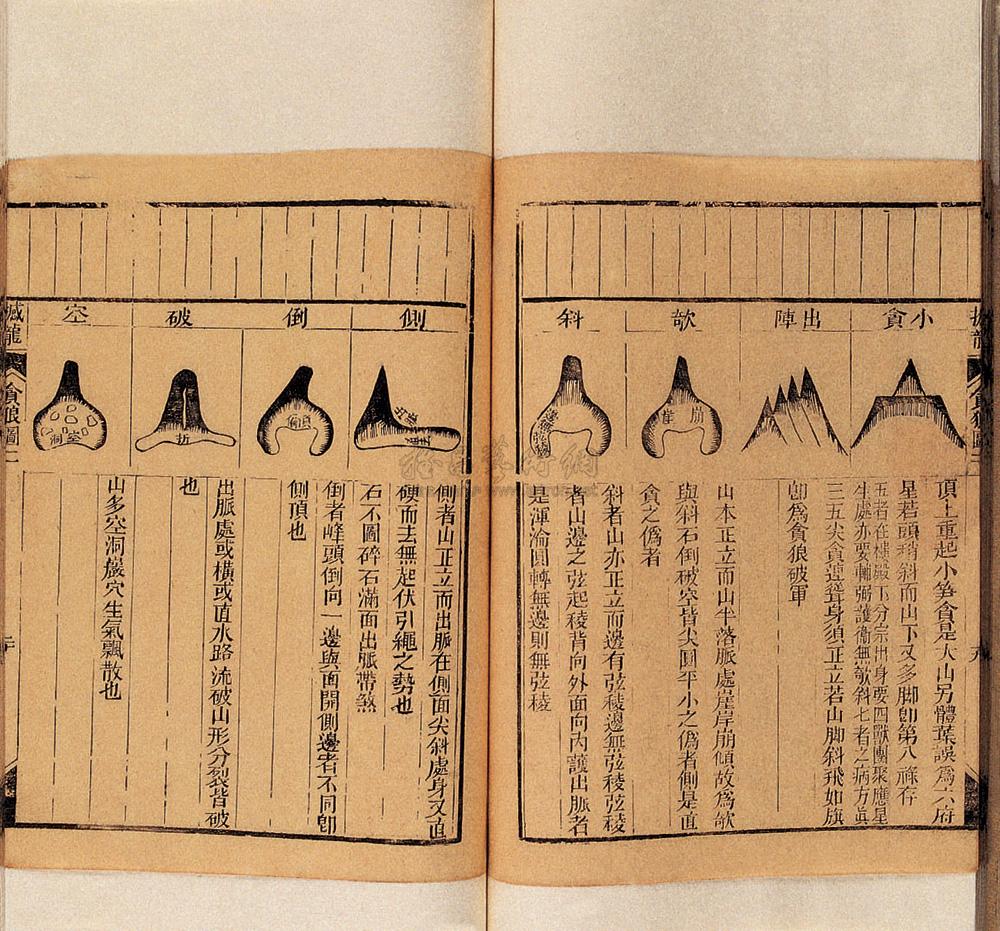 撼龍
貪狼圖
小貪
頂上重起小笋貪是大山另體葉誤為六府
星若頭稍斜而山下又多脚卽第八祿存
出陣
五者在樓殿下分宗出身要四獸團聚應星
生處亦要輔弼護衛無欹斜七者之病方眞
三五尖貪連聳身須正立若山脚斜飛如旗
卽為貪狼破軍
欹
崩崖
山本正立而山半落脈處崖岸崩傾故為欹
與斜石倒破空皆尖圓平小之偽者側是直
貪之偽者
斜
斜者山亦正立而邊有弦稜邊無弦稜弦稜
者山邊之弦起稜背向外面向內護出脈者
是渾淪圓轉無邊則無弦稜
側
側者山正立而出脈在側面尖斜處身又直
硬而去無起伏引繩之勢也
石不圖碎石滿面出脈帶煞
倒
倒者峰頭倒向一邊與面開側邊者不同卽
側頂也
破
折
出脈處或橫或直水路流破山形分裂皆破
也
空
空洞
山多空洞巖穴生氣飄散也
撼龍
貪狼圖二
二十